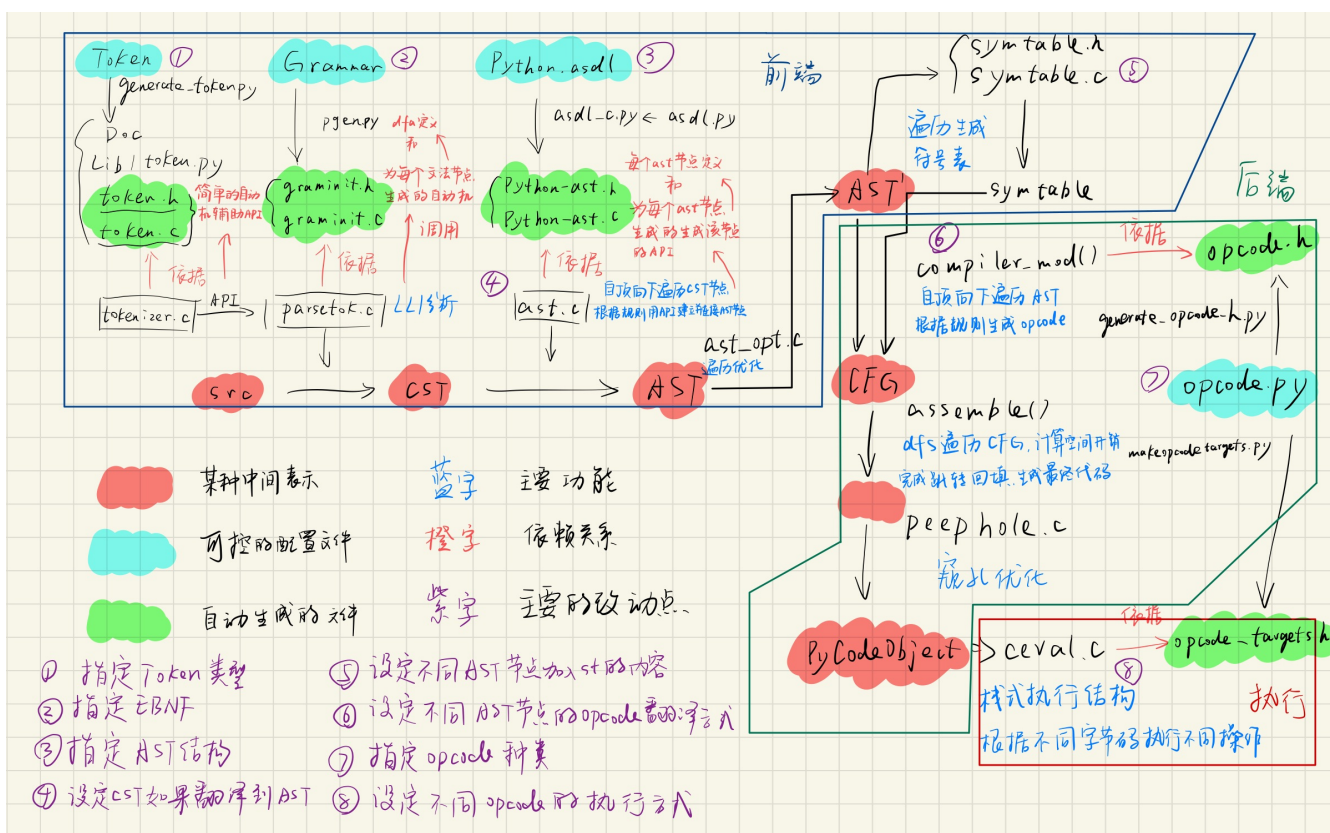 Token ①
generate_token.py
Doc
Lib / token.py
token.h
token.c
简单的自动
机辅助API
依据
tokenizer.c
API
Grammar ②
pgen.py
dfa定义
和
为每个文法节点
生成的自动机
graminit.h
graminit.c
调用
依据
parsetok.c
LL1分析
Python.asdl ③
asdl_c.py ← asdl.py
Python-ast.h
Python-ast.c
每个ast节点定义
和
为每个ast节点
生成的生成该节点
的API
④
依据
ast.c
自顶向下遍历CST节点
根据规则用API建立并连接AST节点
src
CST
AST
ast_opt.c
遍历优化
前端
symtable.h
symtable.c ⑤
遍历生成
符号表
AST'
symtable
后端
⑥
compiler_mod()
自顶向下遍历 AST
根据规则生成opcode
依据
opcode.h
generate_opcode_h.py
⑦ opcode.py
makeopcodetargets.py
CFG
assemble()
dfs遍历CFG,计算空间开销
完成跳转回填,生成最终代码
peephole.c
窥孔优化
PyCodeObject
ceval.c
依据
opcode_targets.h
⑧
栈式执行结构
执行
根据不同字节码执行不同操作
某种中间表示
蓝字 主要功能
可控的配置文件
橙字 依赖关系
自动生成的文件
紫字 主要的改动点
① 指定Token类型
② 指定EBNF
③ 指定AST结构
④ 设定CST如果翻译到AST
⑤ 设定不同AST节点加入st的内容
⑥ 设定不同AST节点的opcode翻译方式
⑦ 指定opcode种类
⑧ 设定不同opcode的执行方式